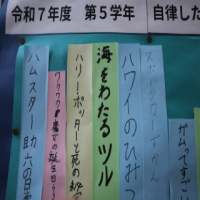 令和7年度 第5学年 自律した
スポ
ハワイのひみつ
海をわたるツル
ハリー・ポッターと死の秘
ワクワク魔女の誕生日
ハムスター助六の日
ガムってすごい